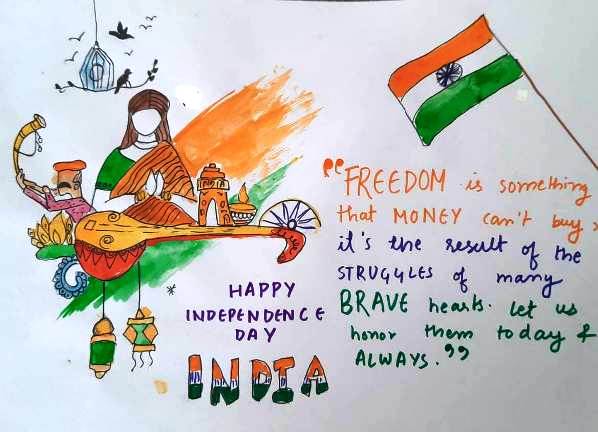 HAPPY
INDEPENDENCE
DAY
INDIA
"FREEDOM is something
that MONEY can't buy,
it's the result of the
STRUGGLES of many
BRAVE hearts. Let us
honor them today &
ALWAYS."